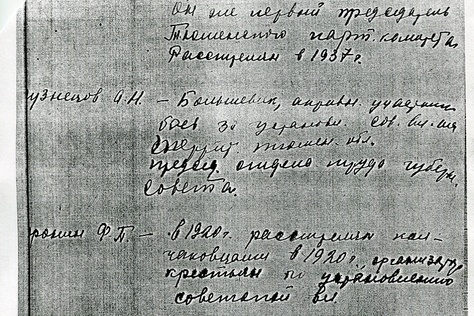 Он же первый председатель
Тюменского парт. комитета
Расстрелян в 1937 г.
узнецов А.Н. – Большевик, активн. участник
боев за установл. Сов. вл. на
террит тюмен. обл.
председ. отдела труда губерн.
совета.
рошин Ф.П. – в 1920 г. расстрелян кол-
чаковцами в 1920 г. организатор
крестьян по установлению
советской вл